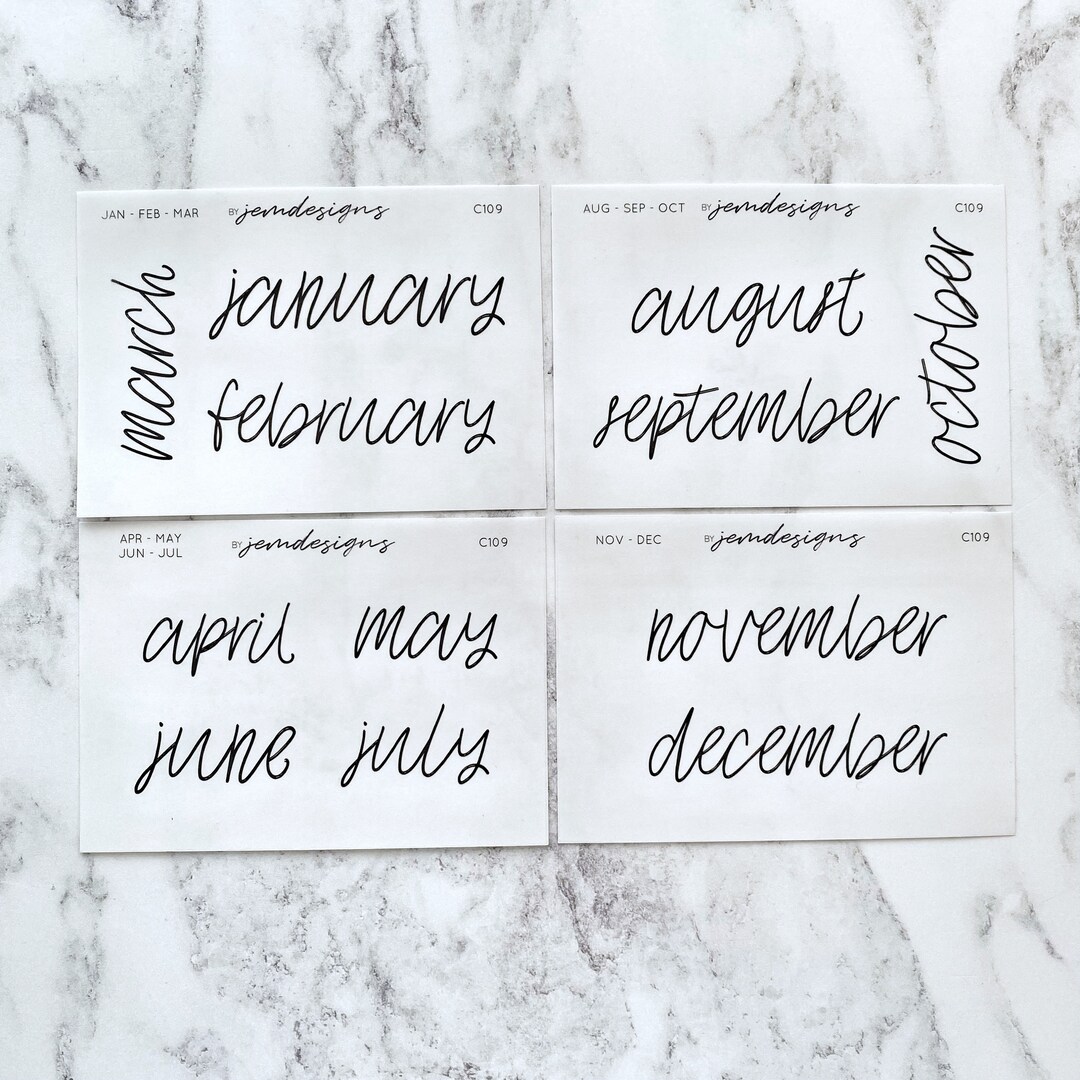 JAN - FEB - MAR BY jemdesigns C109
march
january
february
AUG - SEP - OCT BY jemdesigns C109
august
september
october
APR - MAY
JUN - JUL
BY jemdesigns C109
april may
june july
NOV - DEC BY jemdesigns C109
november
december